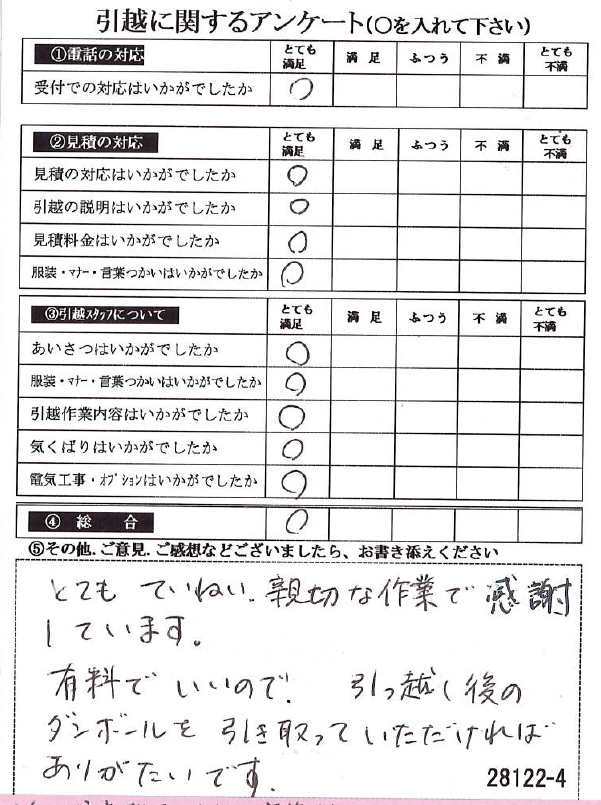 引越に関するアンケート(〇を入れて下さい)
①電話の対応 とても満足 満足 ふつう 不満 とても不満
受付での対応はいかがでしたか 〇
②見積の対応 とても満足 満足 ふつう 不満 とても不満
見積の対応はいかがでしたか 〇
引越の説明はいかがでしたか 〇
見積料金はいかがでしたか 〇
服装・マナー・言葉つかいはいかがでしたか 〇
③引越スタッフについて とても満足 満足 ふつう 不満 とても不満
あいさつはいかがでしたか 〇
服装・マナー・言葉つかいはいかがでしたか 〇
引越作業内容はいかがでしたか 〇
気くばりはいかがでしたか 〇
電気工事・オプションはいかがでしたか 〇
④ 総 合 〇
⑤その他、ご意見、ご感想などございましたら、お書き添えください
とても ていねい、親切な作業で 感謝
しています。
有料でいいので、 引っ越し後の
ダンボールを 引き取っていただければ
ありがたいです。
28122-4